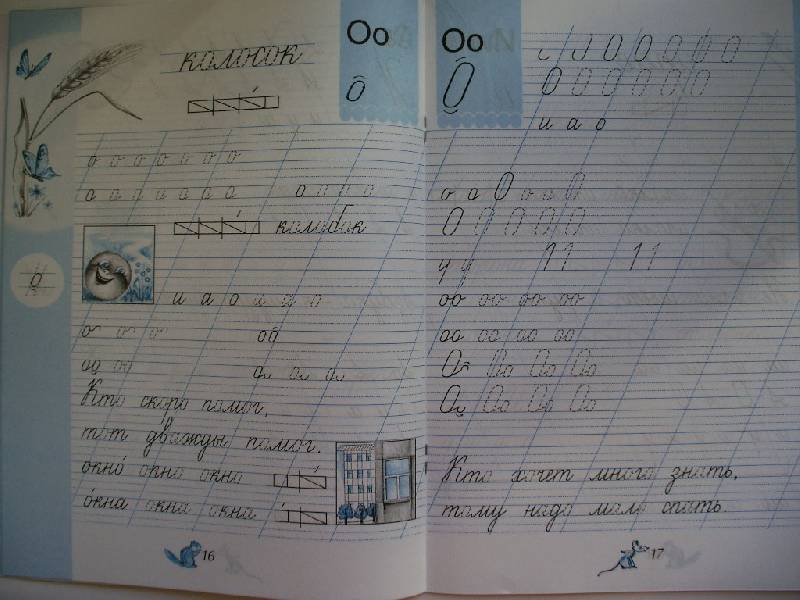 Оо
колосок
о
о о о о о о о
а а а а а а а о о о о
колобок
о
и а о и а о
о о о оо
оо оо а а а
Кто скоро помог,
тот дважды помог.
окно окно окно
окна окна окна
16
Оо
О
О О О О О
О О О О О О О
и а о
о а О о а О
О О О О О
11 11
оо оо оо оо
оо оо оо оо
Оо Оо Оо Оо
Оо Оо Оо Оо
Кто хочет много знать,
тому надо мало спать.
17